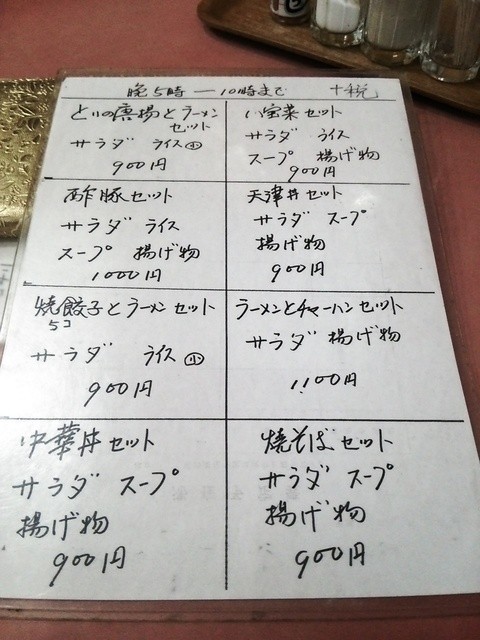 晩5時 — 10時まで +税
とりの唐揚とラーメン
セット
サラダ ライス小
900円
八宝菜セット
サラダ ライス
スープ 揚げ物
900円
酢豚セット
サラダ ライス
スープ 揚げ物
1000円
天津丼セット
サラダ スープ
揚げ物
900円
焼餃子とラーメンセット
5コ
サラダ ライス小
900円
ラーメンとチャーハンセット
サラダ 揚げ物
1100円
中華丼セット
サラダ スープ
揚げ物
900円
焼そばセット
サラダ スープ
揚げ物
900円